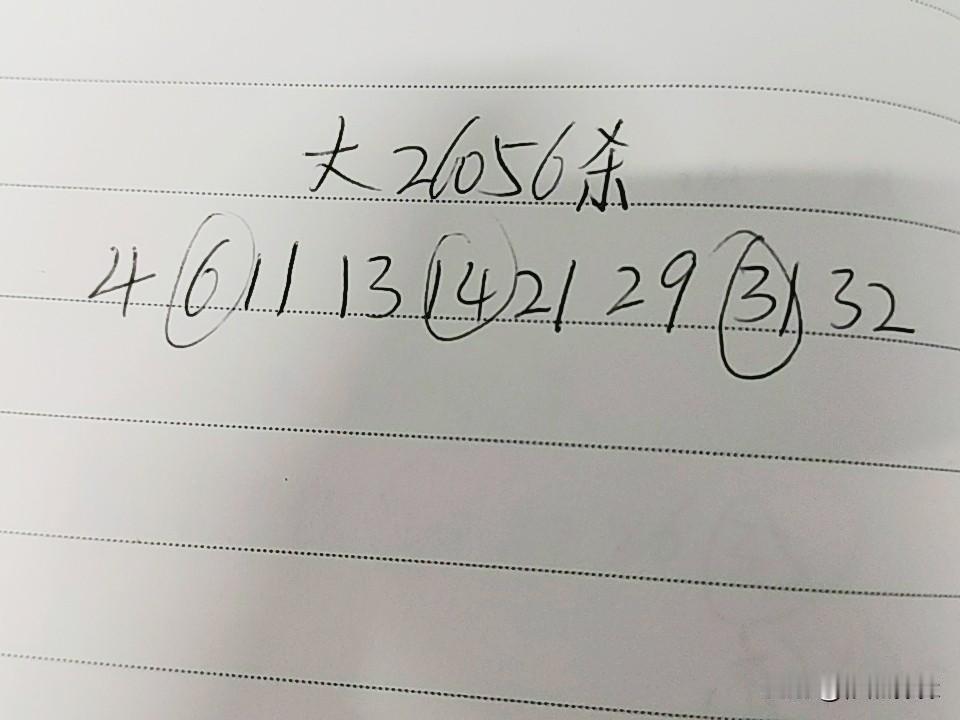 大26056杀
4 6 11 13 14 21 29 31 32